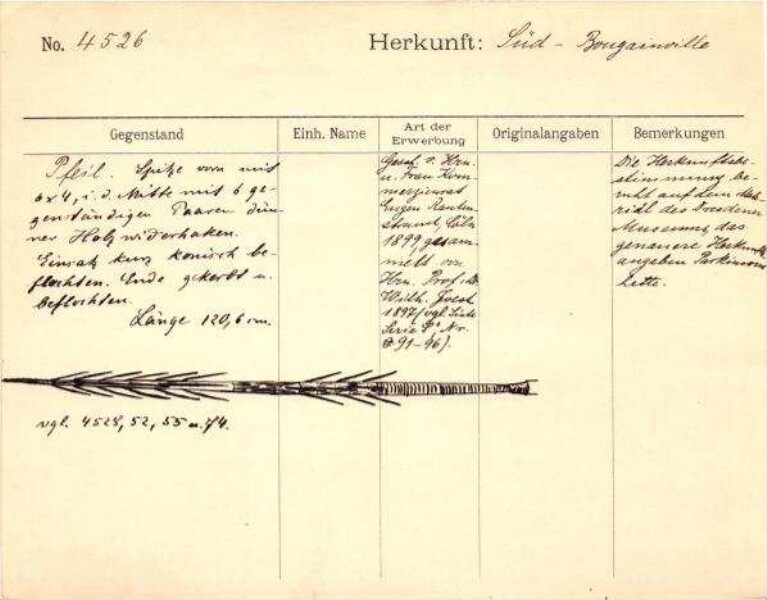 No. 4526
Herkunft: Süd - Bougainville
Gegenstand
Einh. Name
Art der Erwerbung
Originalangaben
Bemerkungen
Pfeil. Spitze vorn mit
6x4, i. d. Mitte mit 6 ge-
genständigen Paaren dün-
ner Holzwiderhaken.
Einsatz kurz konisch be-
flochten. Ende gekerbt u.
beflochten.
Länge 120,6 cm.
Gesch. v. Hrn.
u. Frau Kom-
merzienrat
Eugen Rauten-
strauch, Cöln
1899, gesam-
melt von
Hrn. Prof. Dr.
Wilh. Joest
1897 (vgl. Liste
Serie Nr.
91-96).
Die Herkunftsbe-
stimmung be-
ruht auf dem
des Dresdener
Museums, das
genauere Herkunfts-
angaben Parkinsons
hatte.
vgl. 4528, 52, 55 u. 74.